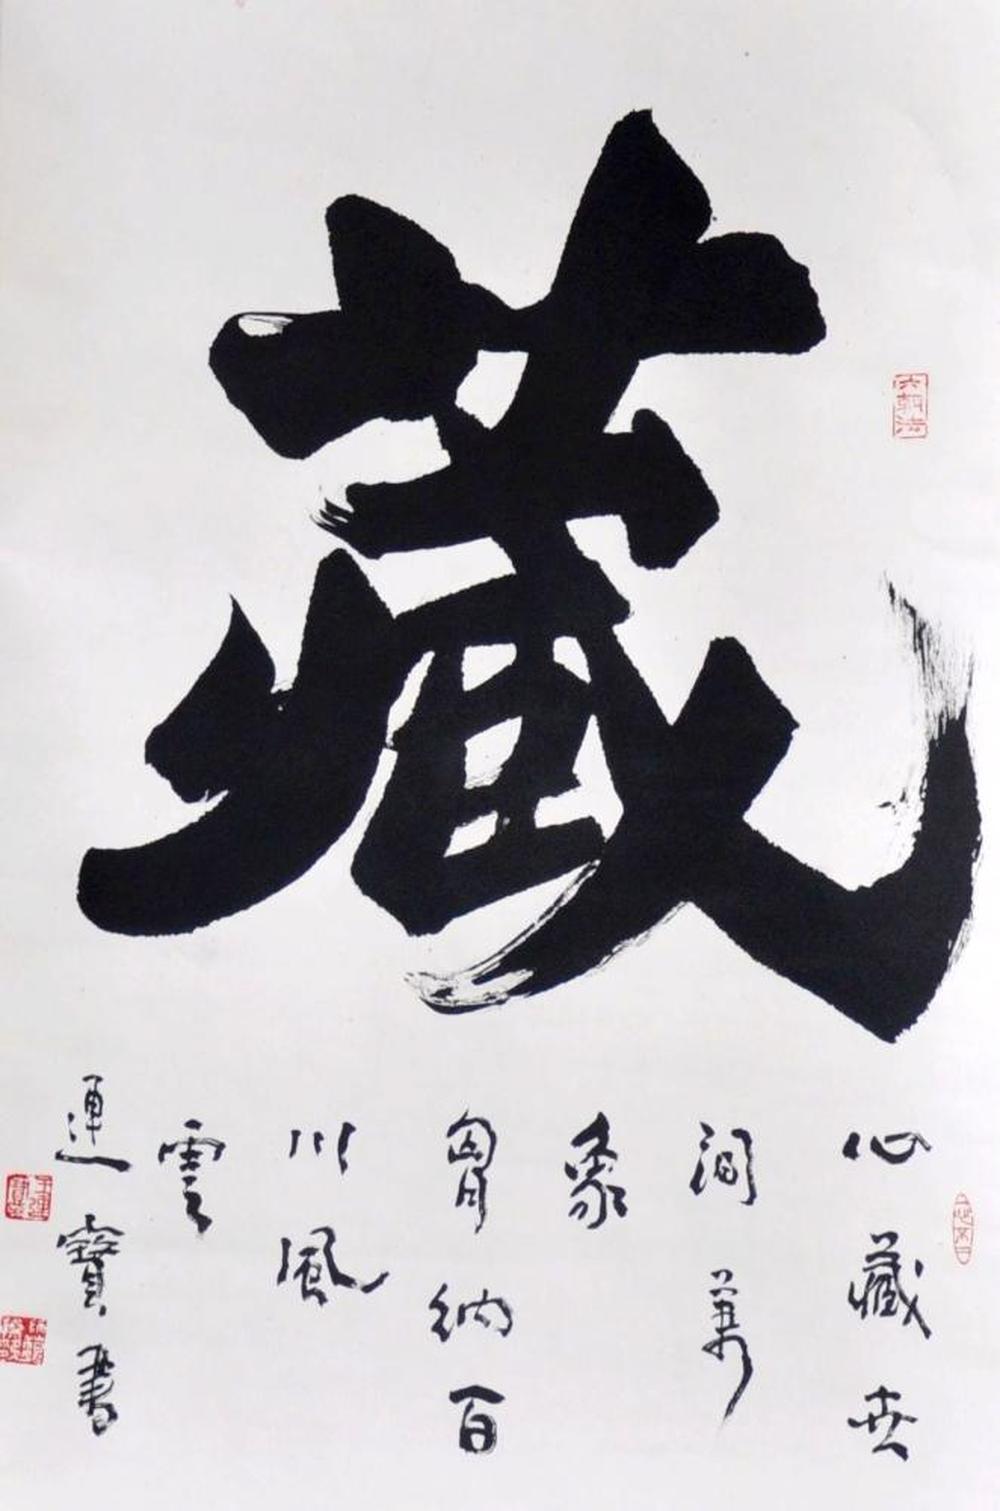 藏
心藏世
间萬
象
胷納百
川風
雲
運寶書